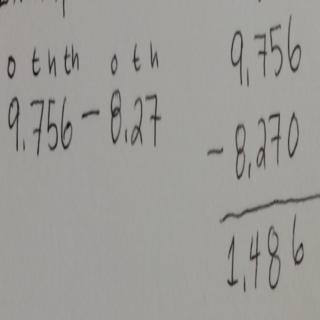 o t h th o t h
9.756 - 8.27
9.756
- 8.270
1.486